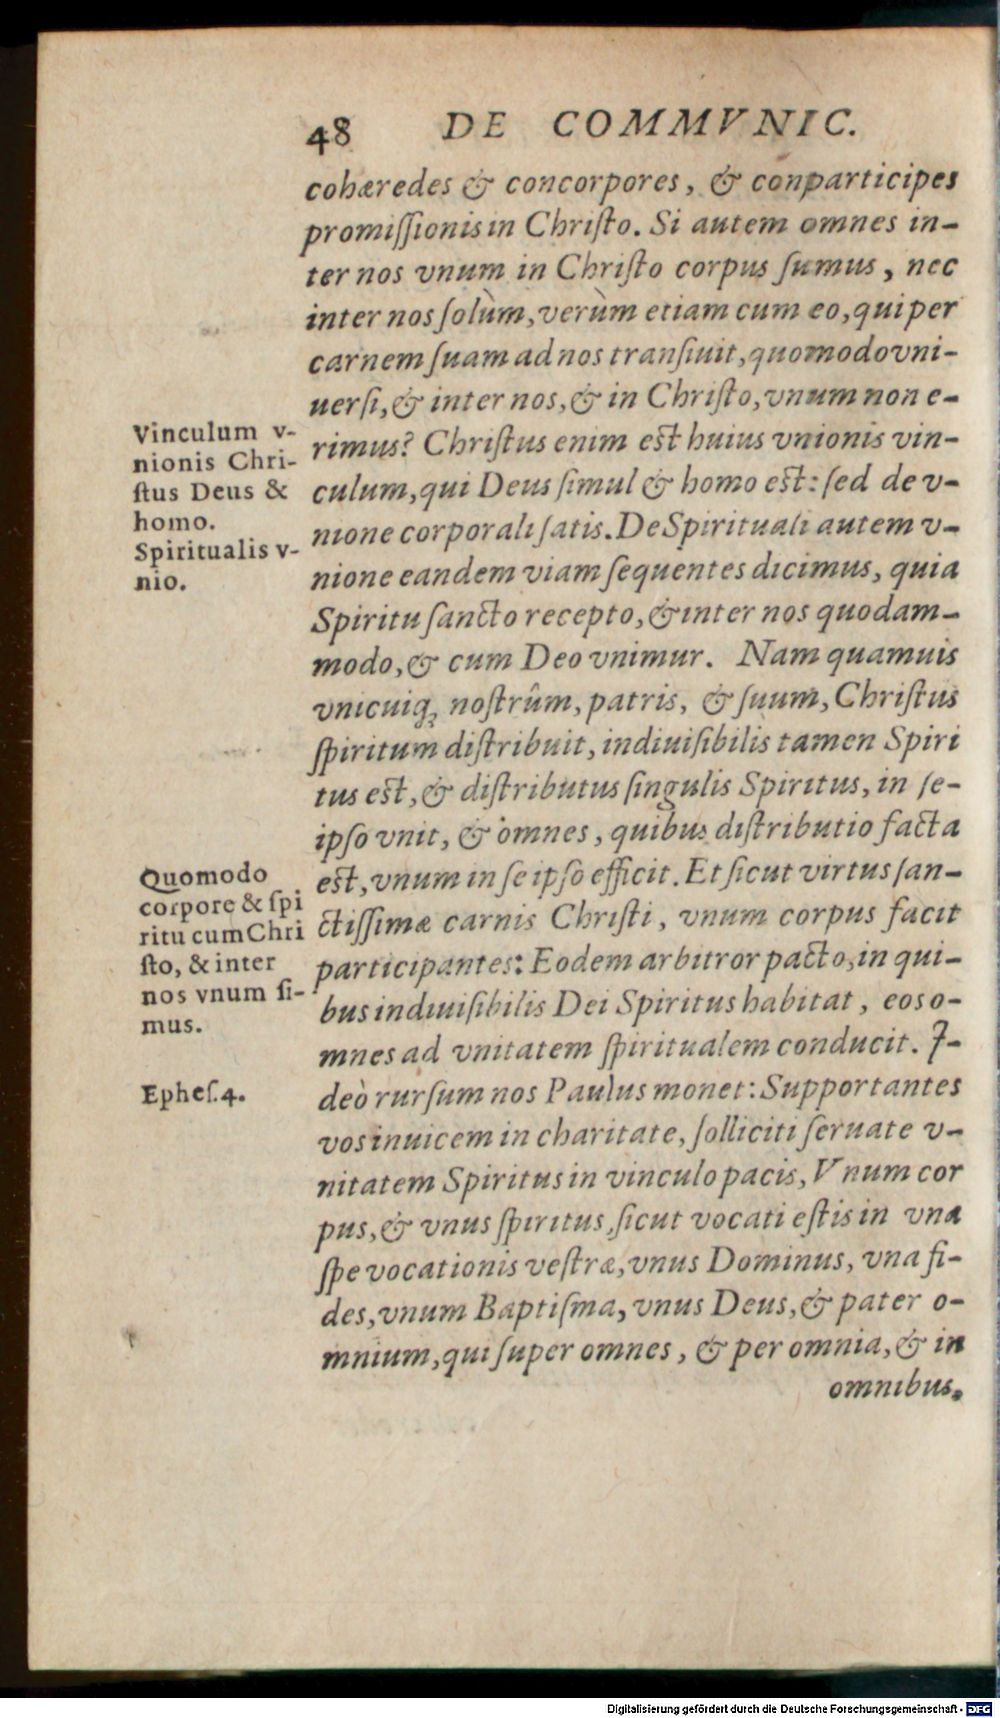 48 DE COMMVNIC.
cohæredes & concorpores, & conparticipes
promiſſionis in Chriſto. Si autem omnes in-
ter nos vnum in Chriſto corpus ſumus, nec
inter nos ſolùm, verùm etiam cum eo, qui per
carnem ſuam ad nos tranſiuit, quomodo vni-
uerſi, & inter nos, & in Chriſto, vnum non e-
rimus? Chriſtus enim eſt huius vnionis vin-
culum, qui Deus ſimul & homo eſt: ſed de v-
nione corporali ſatis. De Spirituali autem v-
nione eandem viam ſequentes dicimus, quia
Spiritu ſancto recepto, & inter nos quodam-
modo, & cum Deo vnimur. Nam quamuis
vnicuiq; noſtrûm, patris, & ſuum, Chriſtus
ſpiritum diſtribuit, indiuiſibilis tamen Spiri
tus eſt, & diſtributus ſingulis Spiritus, in ſe-
ipſo vnit, & omnes, quibus diſtributio facta
eſt, vnum in ſe ipſo efficit. Et ſicut virtus ſan-
ctiſſimæ carnis Chriſti, vnum corpus facit
participantes: Eodem arbitror pacto, in qui-
bus indiuiſibilis Dei Spiritus habitat, eos o-
mnes ad vnitatem ſpiritualem conducit. I-
deò rurſum nos Paulus monet: Supportantes
vos inuicem in charitate, ſolliciti ſeruate v-
nitatem Spiritus in vinculo pacis, Vnum cor
pus, & vnus ſpiritus, ſicut vocati eſtis in vna
ſpe vocationis veſtræ, vnus Dominus, vna fi-
des, vnum Baptiſma, vnus Deus, & pater o-
mnium, qui ſuper omnes, & per omnia, & in
omnibus.
Vinculum v-
nionis Chri-
ſtus Deus &
homo.
Spiritualis v-
nio.
Quomodo
corpore & ſpi
ritu cum Chri
ſto, & inter
nos vnum ſi-
mus.
Epheſ. 4.
Digitalisierung gefördert durch die Deutsche Forschungsgemeinschaft - DFG